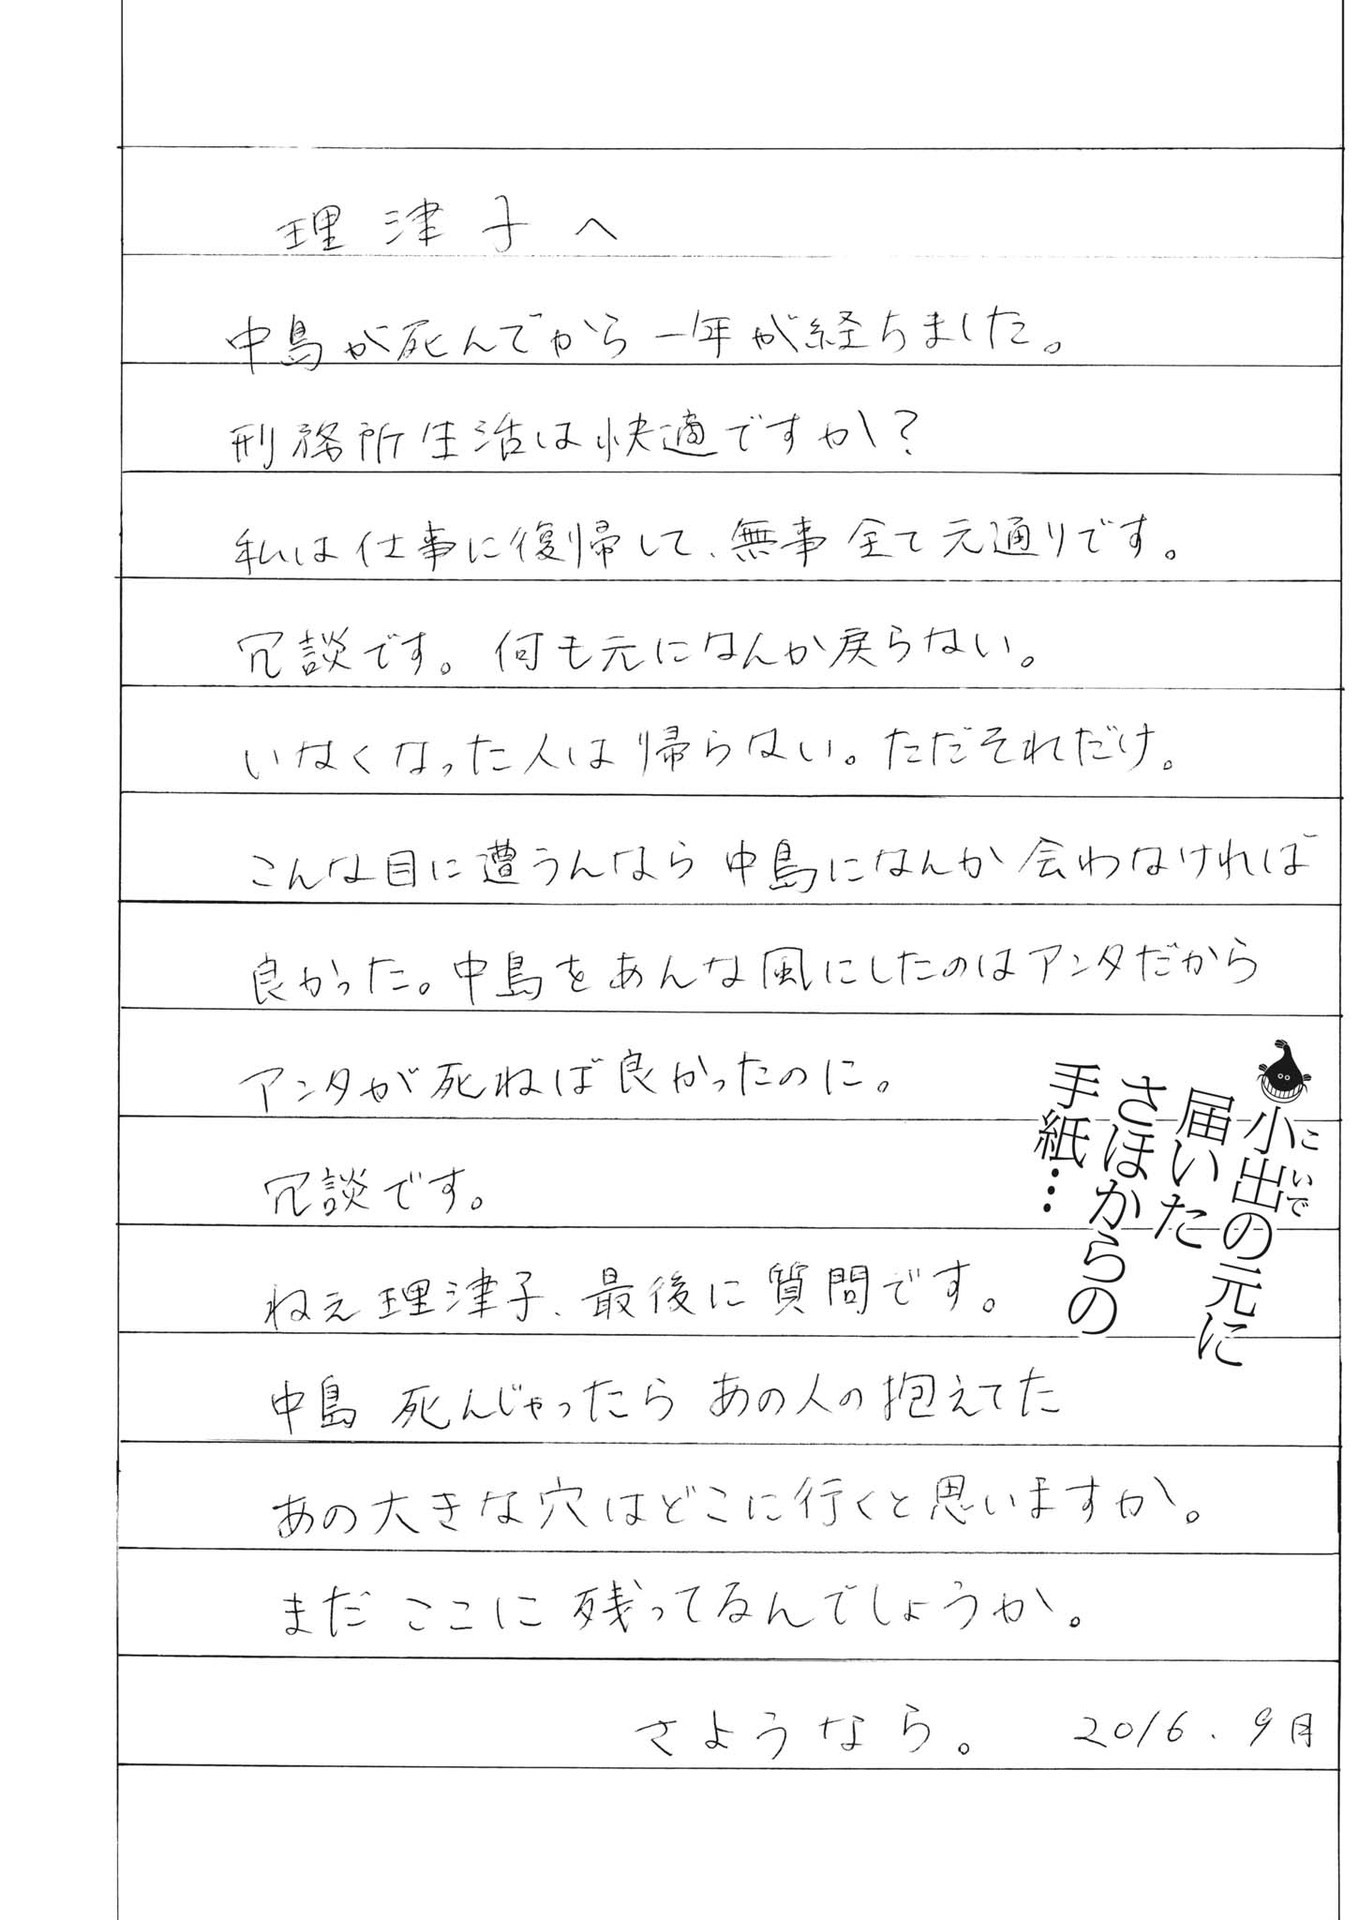 理津子へ
中島が死んでから一年が経ちました。
刑務所生活は快適ですか?
私は仕事に復帰して、無事全て元通りです。
冗談です。何も元になんか戻らない。
いなくなった人は帰らない。ただそれだけ。
こんな目に遭うんなら中島になんか会わなければ
良かった。中島をあんな風にしたのはアンタだから
アンタが死ねば良かったのに。
冗談です。
ねぇ理津子、最後に質問です。
中島死んじゃったらあの人の抱えてた
あの大きな穴はどこに行くと思いますか。
まだここに残ってるんでしょうか。
さようなら。 2016.9月
小出の元に
こいで
届いた
さほからの
手紙…